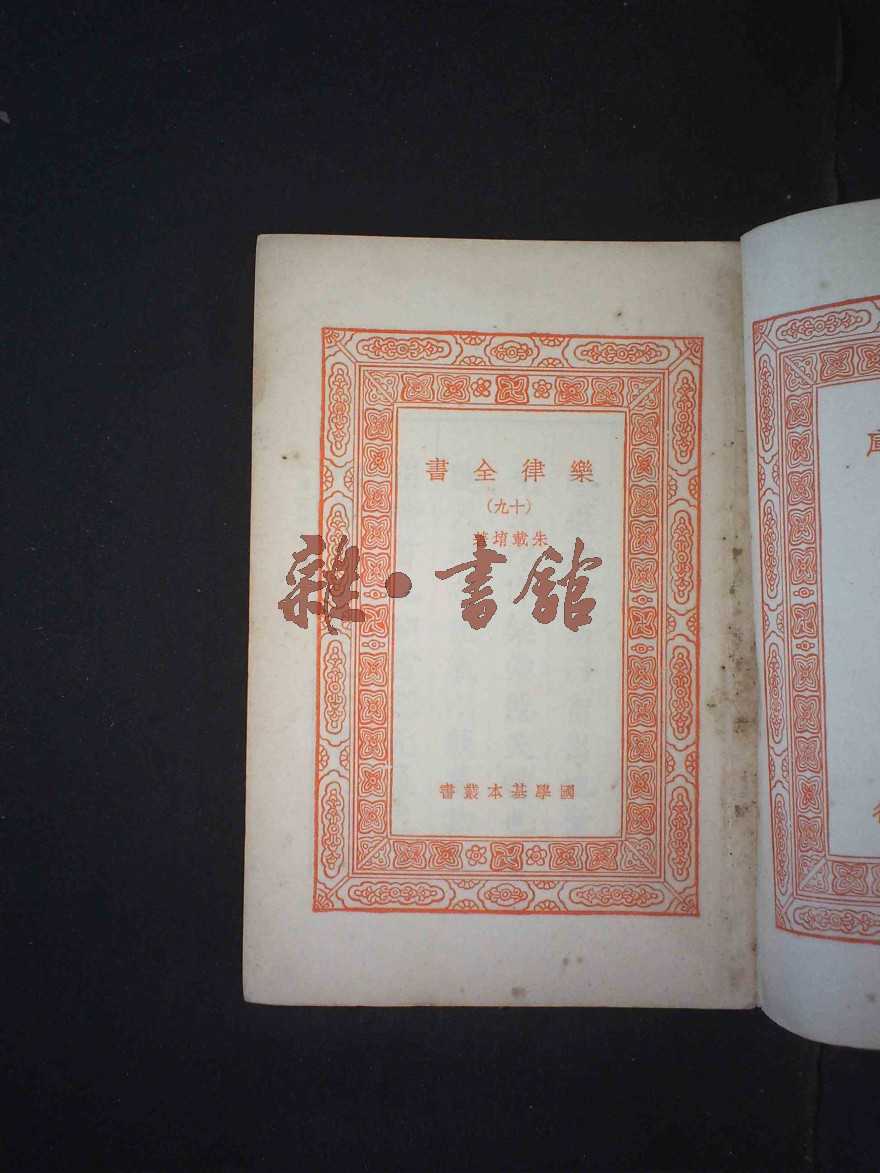 樂律全書
(十九)
朱載堉著
雜·書館
國學基本叢書